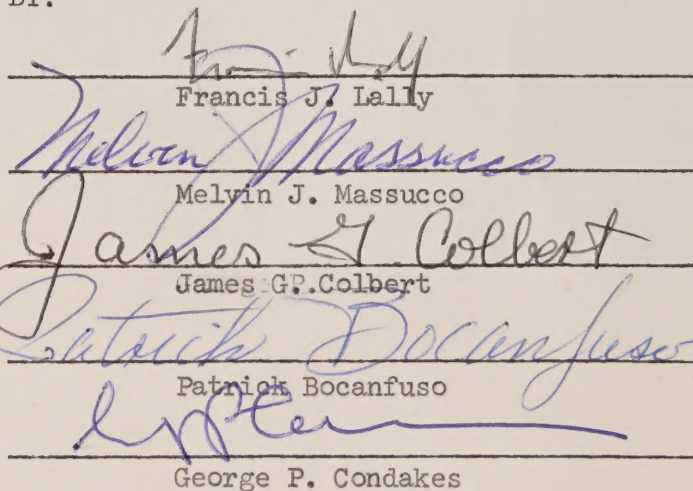 BY:
Francis J. Lally
Melvin J Massucco
Melvin J. Massucco
James G. Colbert
James G. Colbert
Patrick Bocanfuso
Patrick Bocanfuso
George P. Condakes